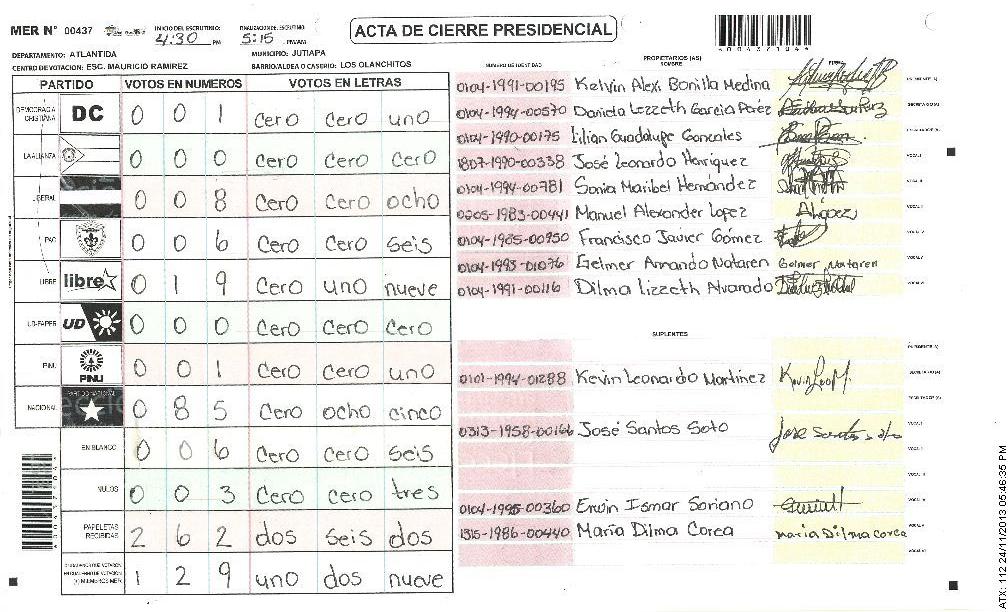 MER N° 00437 INICIO DEL ESCRUTINIO: 4:30 PM FINALIZACION DEL ESCRUTINIO: 5:15 PM/AM
ACTA DE CIERRE PRESIDENCIAL
DEPARTAMENTO: ATLANTIDA MUNICIPIO: JUTIAPA
CENTRO DE VOTACION: ESC. MAURICIO RAMIREZ BARRIO/ALDEA O CASERIO: LOS OLANCHITOS
PARTIDO VOTOS EN NUMEROS VOTOS EN LETRAS
DEMOCRACIA CRISTIANA DC 0 0 1 cero cero uno
LA ALIANZA 0 0 0 cero cero cero
LIBERAL 0 0 8 cero cero ocho
PAC 0 0 6 cero cero seis
LIBRE libre 0 1 9 cero uno nueve
UD-FAPER UD 0 0 0 cero cero cero
PINU PINU 0 0 1 cero cero uno
NACIONAL PARTIDO NACIONAL 0 8 5 cero ocho cinco
EN BLANCO 0 0 6 cero cero seis
NULOS 0 0 3 cero cero tres
PAPELETAS RECIBIDAS 2 6 2 dos seis dos
(+) MIEMBROS MER 1 2 9 uno dos nueve
NUMERO DE IDENTIDAD PROPIETARIOS (AS) NOMBRE FIRMA
0104-1991-00195 Kelvin Alex Bonilla Medina
0104-1994-00570 Daniela Lizzeth Garcia Perez
0104-1990-00175 Lilian Guadalupe Gonzales
1807-1990-00338 José Leonardo Henriquez
0104-1994-00781 Sonia Maribel Hernández
0205-1983-00441 Manuel Alexander Lopez
0104-1985-00950 Francisco Javier Gómez
0104-1993-01076 Gelmer Armando Nataren Gelmer Nataren
0104-1991-00116 Dilma Lizzeth Alvarado
SUPLENTES
0101-1994-01288 Kevin Leonardo Martínez
0313-1958-00166 José Santos Soto Jose Santos Soto
0104-1995-00360 Erwin Ismar Soriano
1315-1986-00440 María Dilma Corea Maria Dilma Corea
ATX: 112 24/11/2013 05:46:35 PM